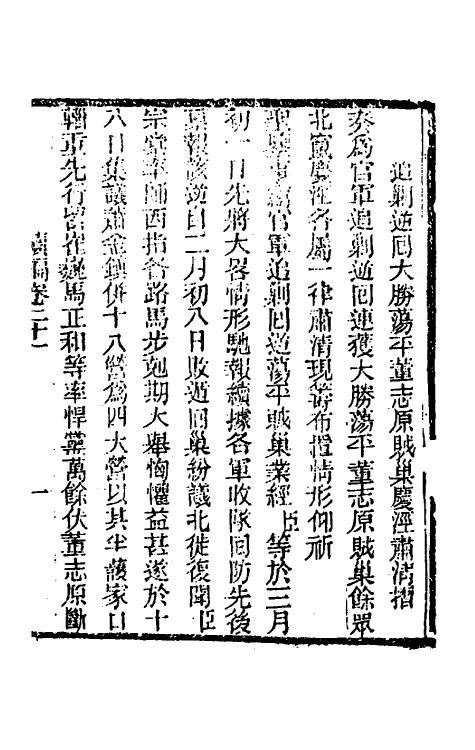 追剿逆囘大勝蕩平董志原賊巢慶涇肅清摺
奏爲官軍追剿逆囘連獲大勝蕩平董志原賊巢餘眾
北竄慶涇各屬一律肅清現籌布置情形仰祈
聖鑒事竊官軍追剿囘逆蕩平賊巢業經臣等於三月
初一日先將大畧情形馳報續據各軍收隊囘防先後
稟報該逆自二月初八日敗遁囘巢紛議北徙復聞臣
宗棠率師西指各路馬步剋期大舉恟懼益甚遂於十
八日集議蕭金鎮併十八營爲四大營以其半護家口
輜重先行皆崔三馬正和等率悍黨萬餘伏董志原斷
奏稿卷三十一
一